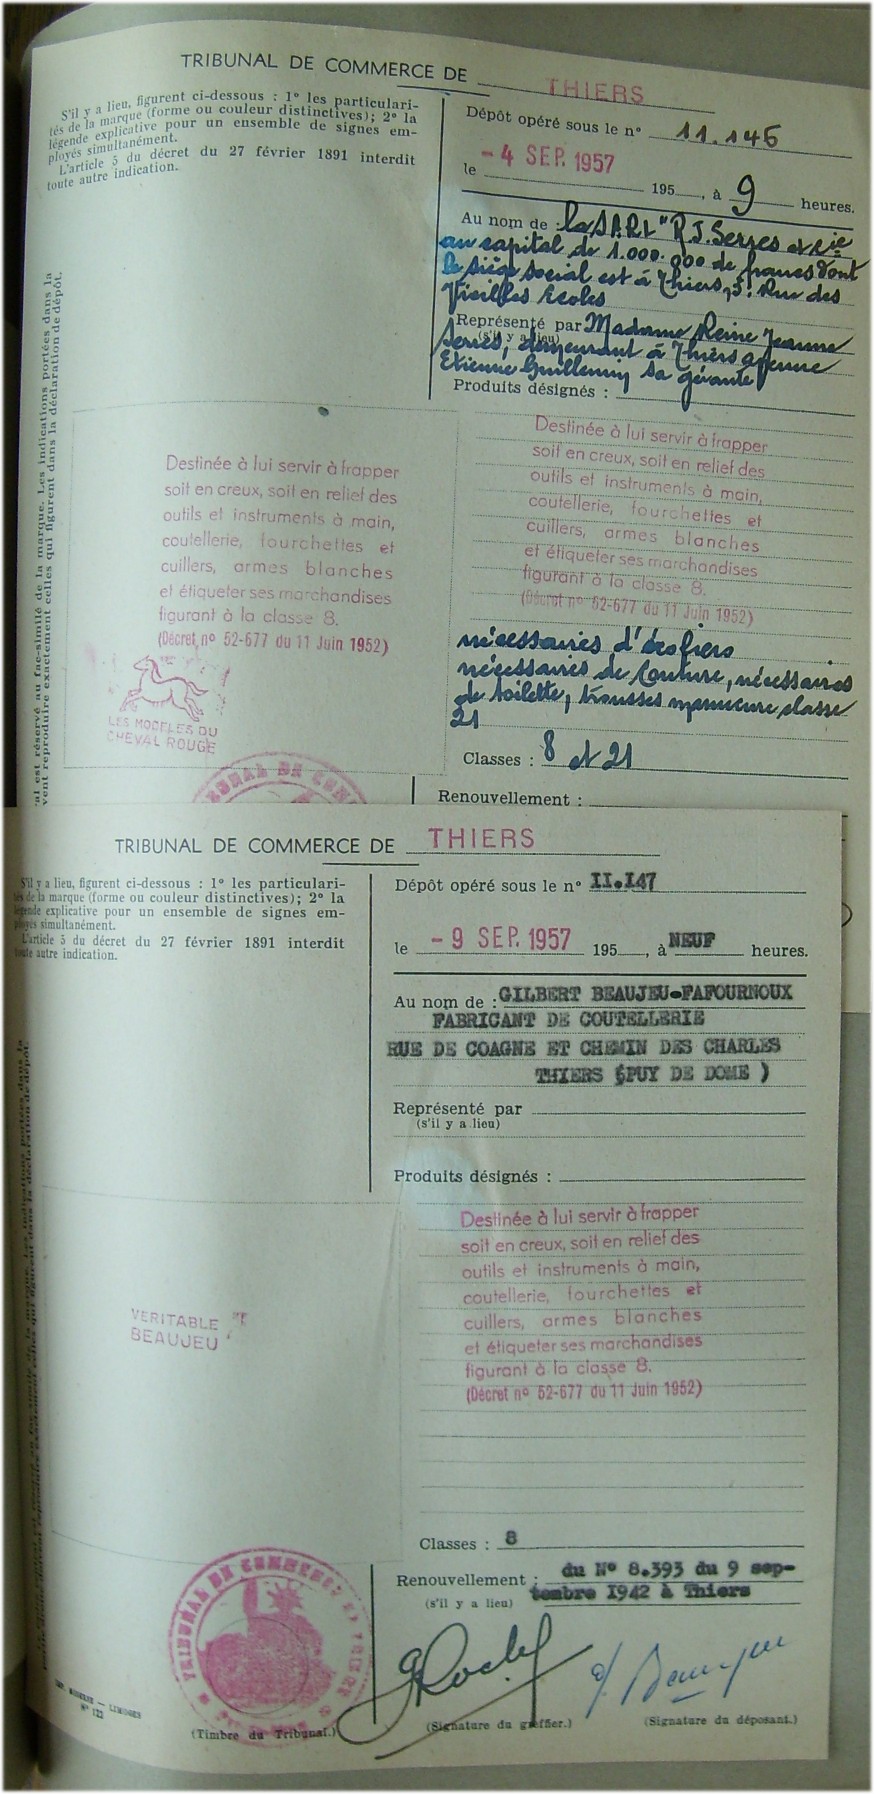 TRIBUNAL DE COMMERCE DE THIERS
S'il y a lieu, figurent ci-dessous : 1° les particulari-
tés de la marque (forme ou couleur distinctives); 2° la
légende explicative pour un ensemble de signes em-
ployés simultanément.
L'article 5 du décret du 27 février 1891 interdit
toute autre indication.
Dépôt opéré sous le n° 11.146
le - 4 SEP. 1957 195 , à 9 heures.
Au nom de : la SARL "R J. Serres et Cie
au capital de 1.000.000 de francs dont
le siège social est à Thiers, 3! Rue des
Vieilles Ecoles
Représenté par Madame Reine Jeanne
(s'il y a lieu)
Serres, demeurant à Thiers avenue
Etienne Guillemin sa gérante
Produits désignés :
al est réservé au fac-similé de la marque. Les indications portées dans la
vent reproduire exactement celles qui figurent dans la déclaration de dépôt.
Destinée à lui servir à frapper
soit en creux, soit en relief des
outils et instruments à main,
coutellerie, fourchettes et
cuillers, armes blanches
et étiqueter ses marchandises
figurant à la classe 8.
(Décret nº 52-677 du 11 Juin 1952)
LES MODELES DU
CHEVAL ROUGE
Destinée à lui servir à frapper
soit en creux, soit en relief des
outils et instruments à main,
coutellerie, fourchettes et
cuillers, armes blanches
et étiqueter ses marchandises
figurant à la classe 8.
(Décret nº 52-677 du 11 Juin 1952)
nécessaires d'écoliers
nécessaires de couture, nécessaires
de toilette, trousses manucure classe
21
Classes : 8 et 21
Renouvellement :
TRIBUNAL DE COM
TRIBUNAL DE COMMERCE DE THIERS
S'il y a lieu, figurent ci-dessous : 1° les particulari-
tés de la marque (forme ou couleur distinctives); 2° la
légende explicative pour un ensemble de signes em-
ployés simultanément.
L'article 5 du décret du 27 février 1891 interdit
toute autre indication.
Dépôt opéré sous le n° II.I47
le - 9 SEP. 1957 195 , à NEUF heures.
Au nom de : GILBERT BEAUJEU-FAFOURNOUX
FABRICANT DE COUTELLERIE
RUE DE COAGNE ET CHEMIN DES CHARLES
THIERS (PUY DE DOME )
Représenté par
(s'il y a lieu)
Produits désignés :
Destinée à lui servir à frapper
soit en creux, soit en relief des
outils et instruments à main,
coutellerie, fourchettes et
cuillers, armes blanches
et étiqueter ses marchandises
figurant à la classe 8.
(Décret nº 52-677 du 11 Juin 1952)
VERITABLE
BEAUJEU
Classes : 8
Renouvellement : du N° 8.393 du 9 sep-
(s'il y a lieu) tembre I942 à Thiers
TRIBUNAL DE COMMERCE
LIMOGES
N° 122
(Timbre du Tribunal.)
(Signature du greffier.)
(Signature du déposant.)